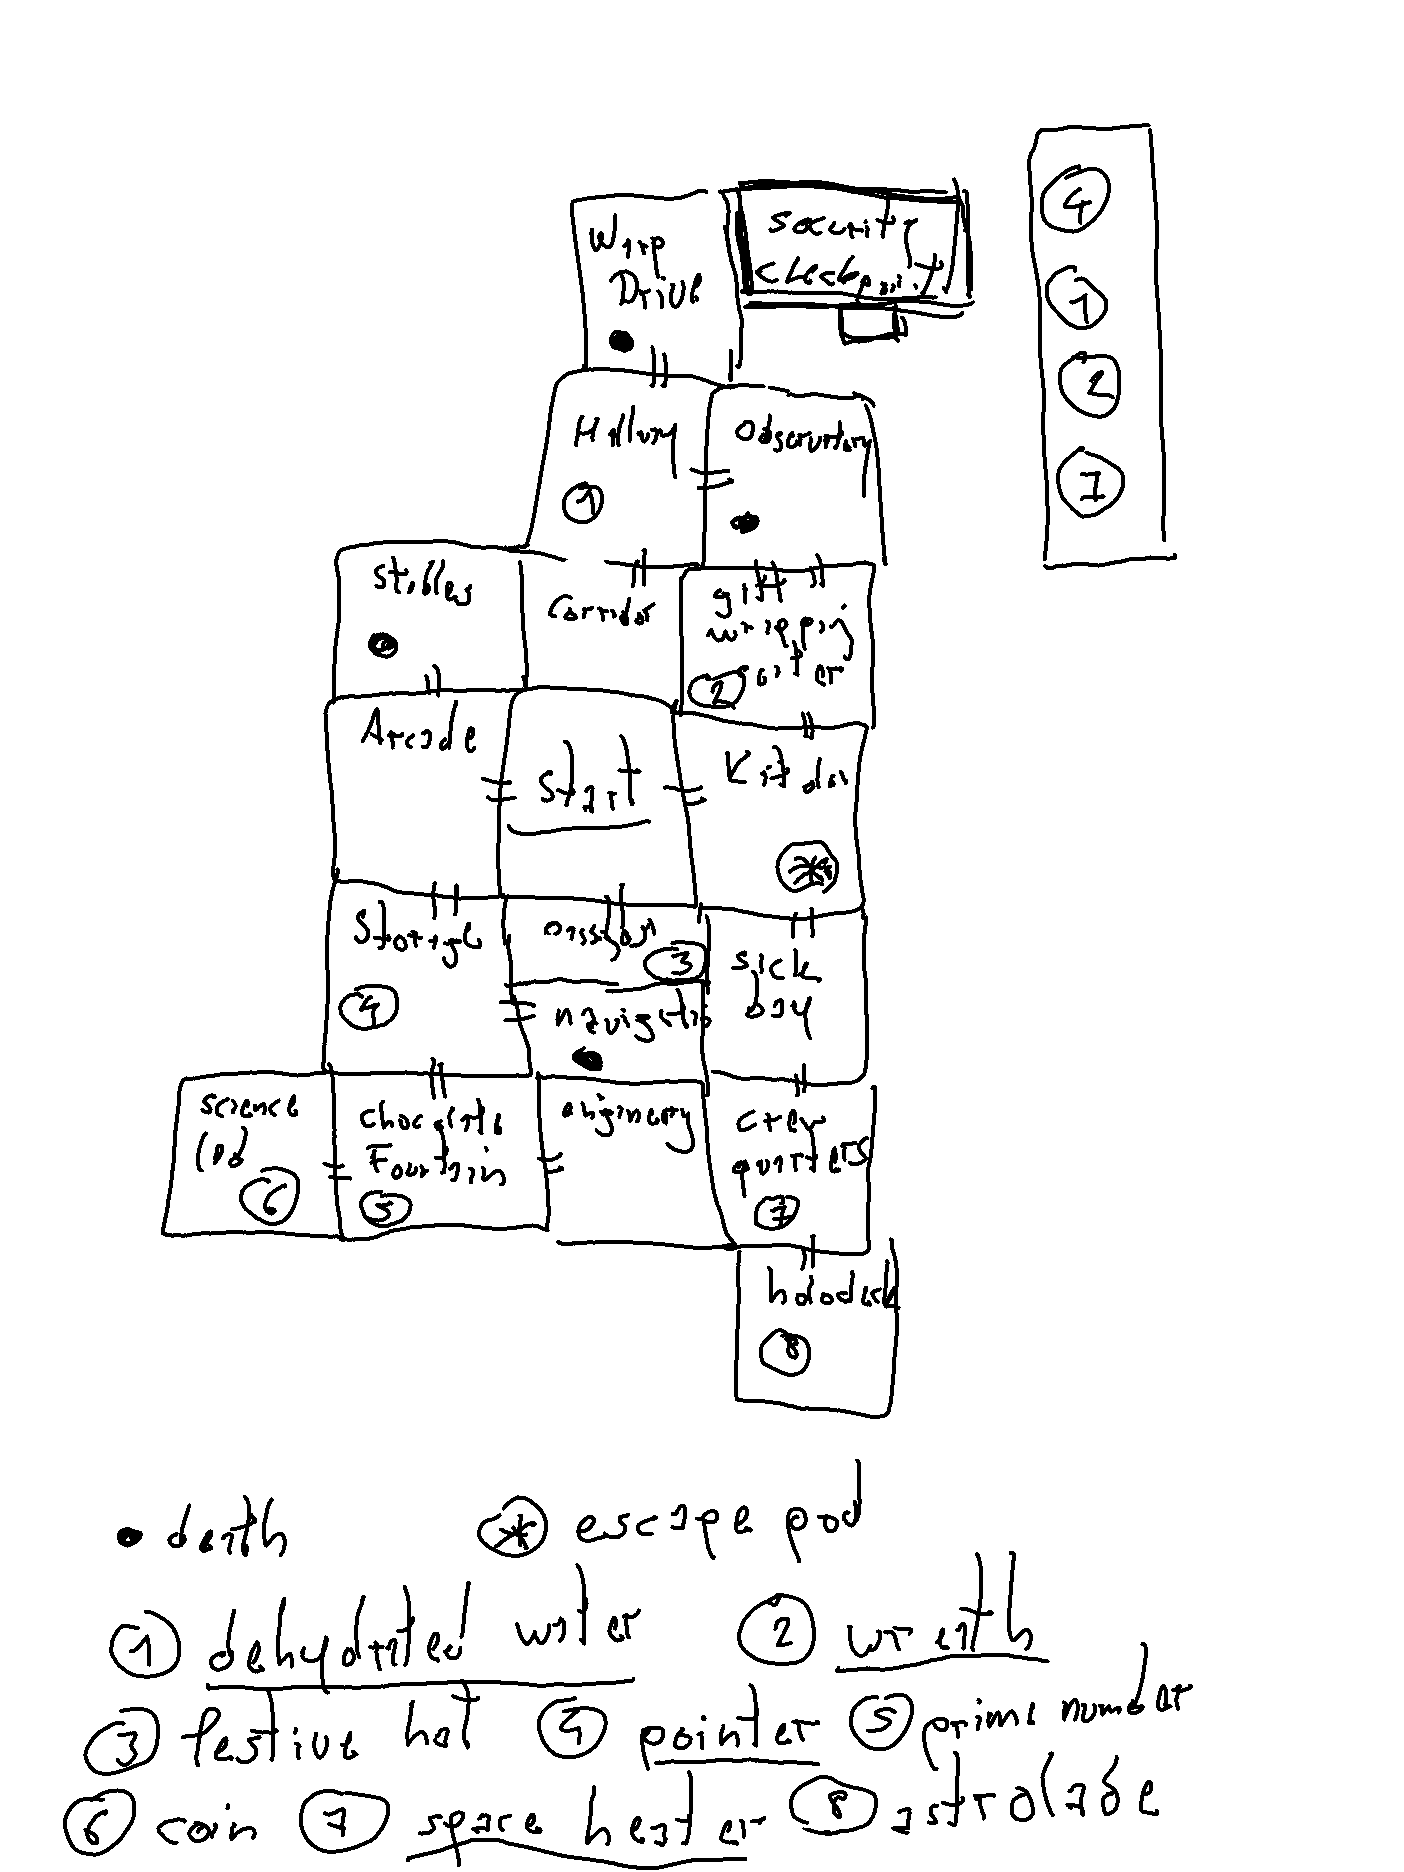 Warp
Drive
Security
checkpoint
4
7
2
1
Hallway
1
Observatory
stables
Corridor
gift
wrapping
center
2
Arcade
Start
Kitchen
*
Storage
4
passage
3
navigation
sick
bay
science
lab
6
chocolate
Fountain
5
enginnery
crew
quarters
7
holodeck
8
death
* escape pod
1 dehydrated water
2 wreath
3 festive hat
4 pointer
5 prime number
6 coin
7 space heater
8 astrolabe